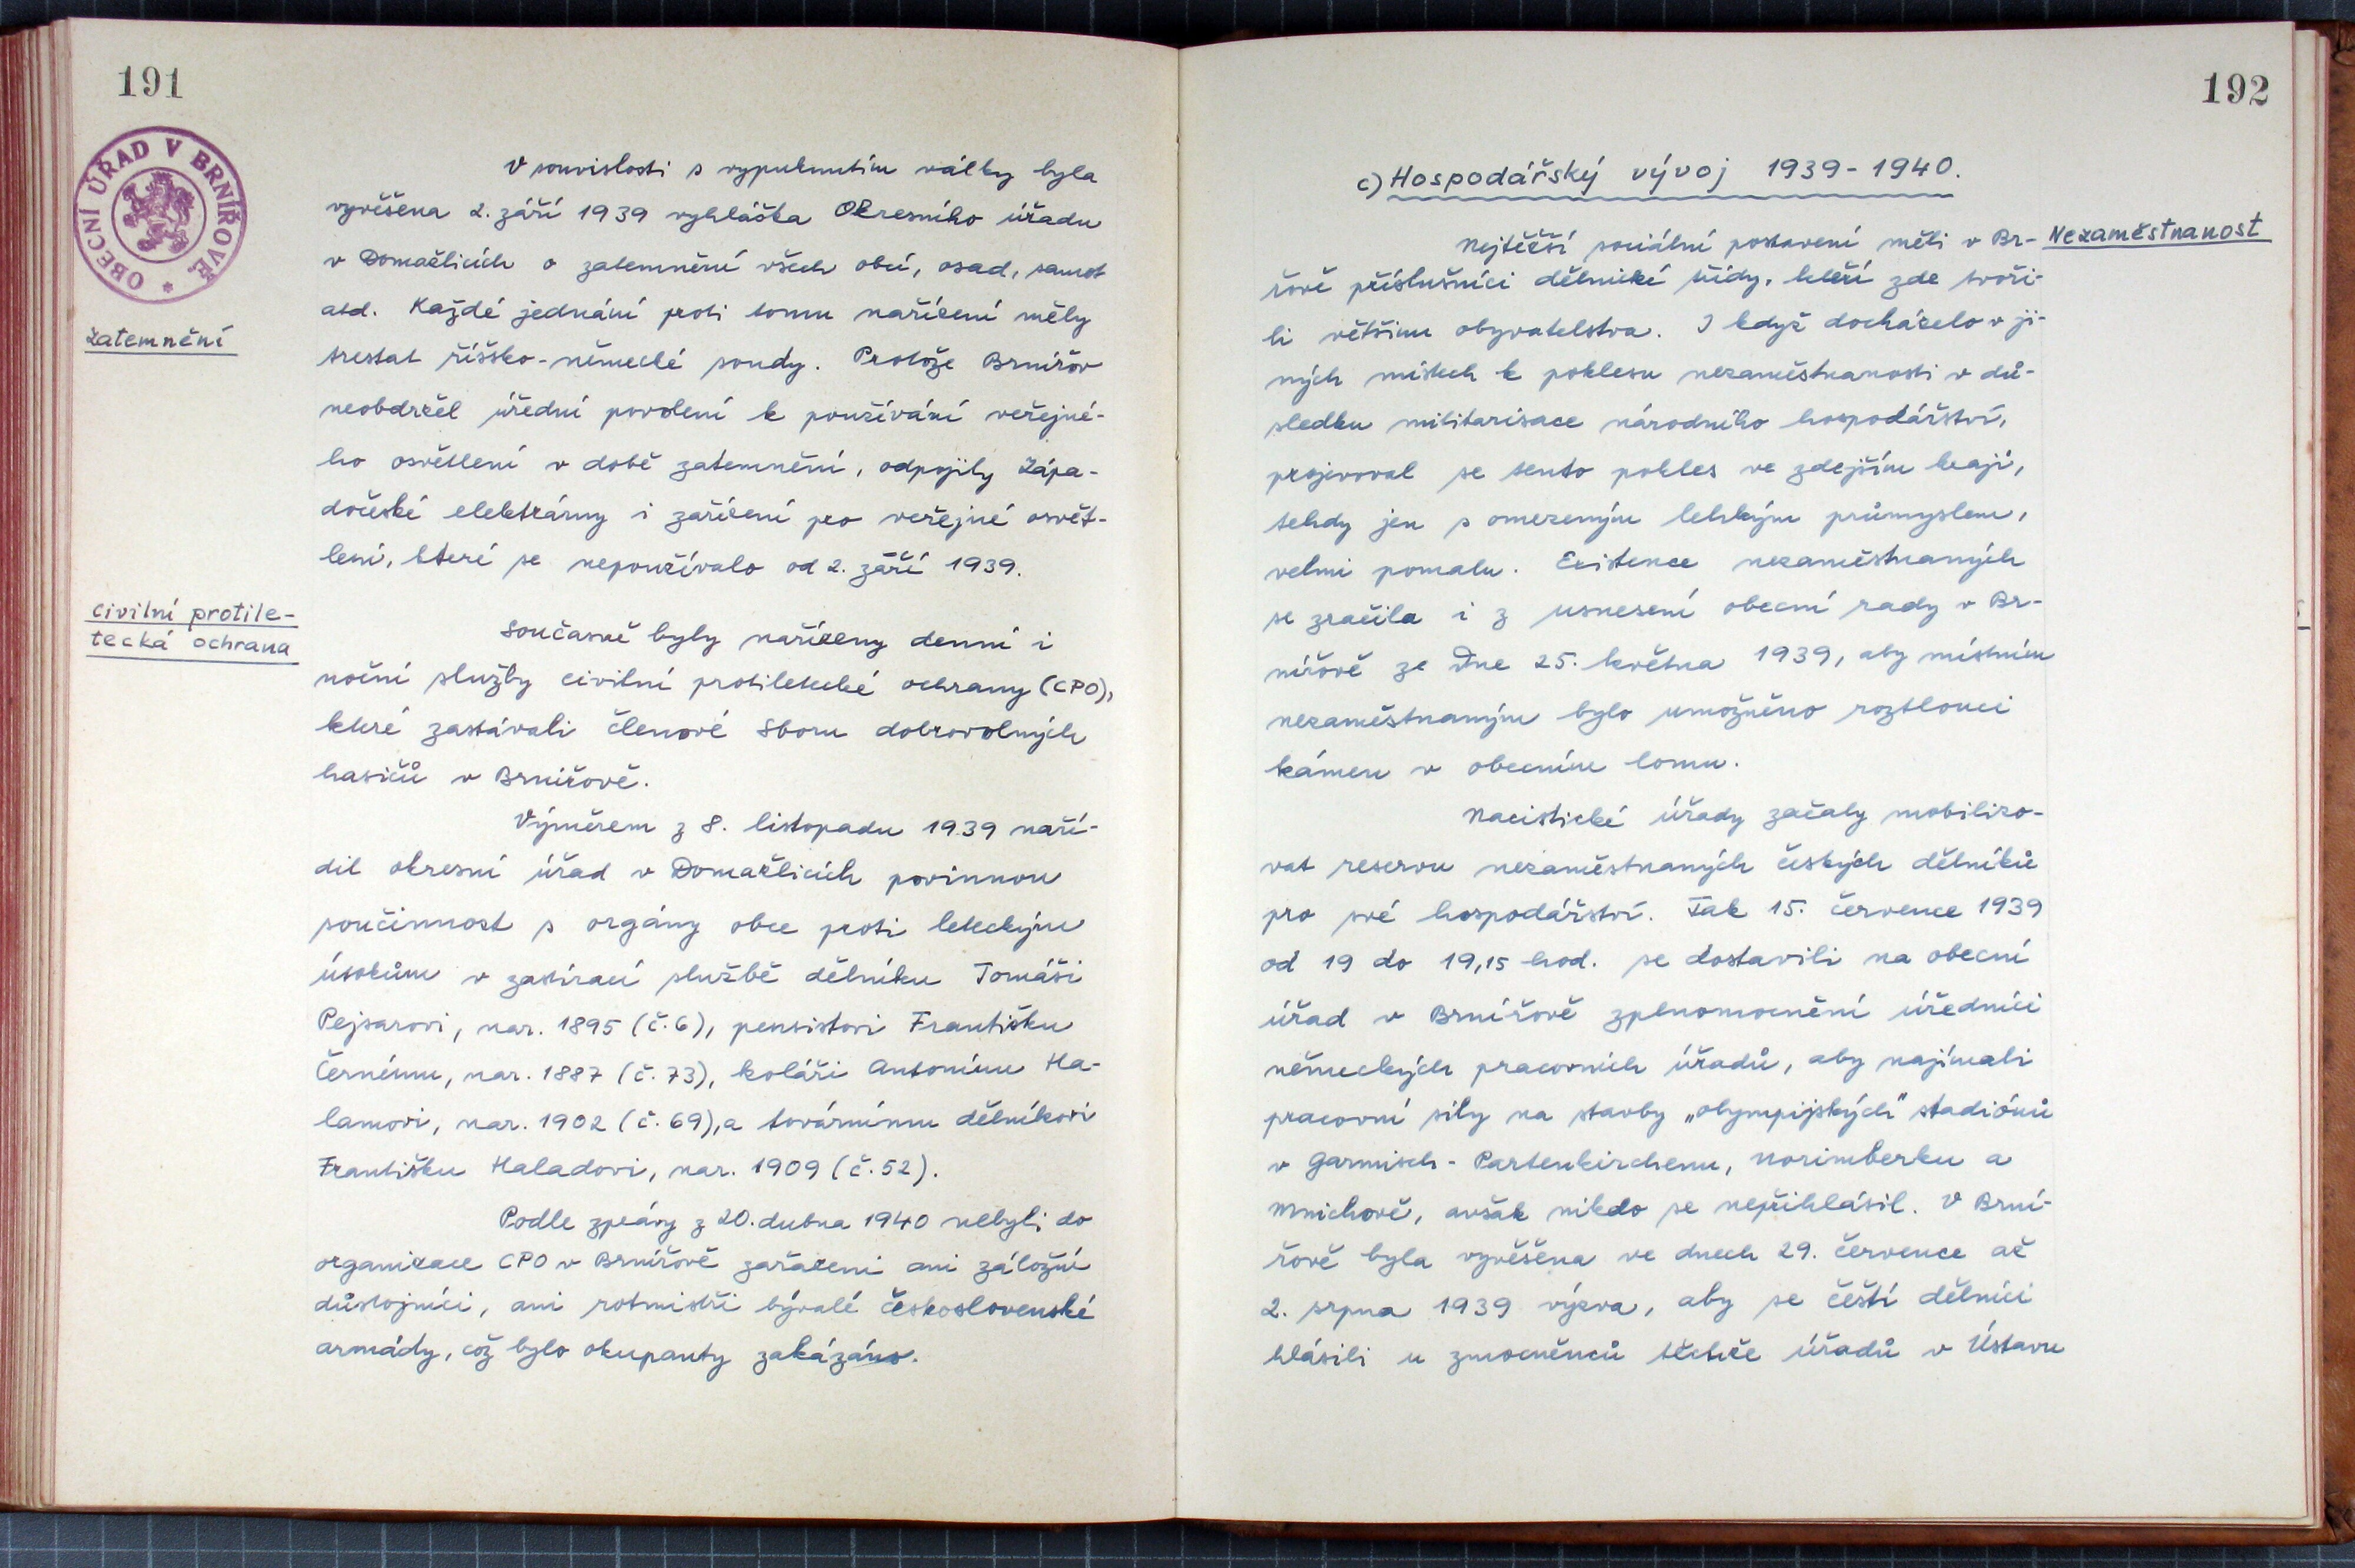 191
OBECNÍ ÚŘAD V BRNÍŘOVĚ *
V souvislosti s vypuknutím války byla
vyvěšena 2. září 1939 vyhláška Okresního úřadu
v Domažlicích o zatemnění všech obcí, osad, samot
atd. Každé jednání proti tomu nařízení měly
Zatemnění
trestat říšsko-německé soudy. Protože Brnířov
neobdržel úřední povolení k používání veřejné-
ho osvětlení v době zatemnění, odpojily Zápa-
dočeské elektrárny i zařízení pro veřejné osvět-
lení, které se nepoužívalo od 2. září 1939.
Civilní protile-
tecká ochrana
Současně byly nařízeny denní i
noční služby civilní protiletecké ochrany (CPO),
které zastávali členové Sboru dobrovolných
hasičů v Brnířově.
Výměrem z 8. listopadu 1939 naří-
dil okresní úřad v Domažlicích povinnou
součinnost s orgány obce proti leteckým
útokům v zastírací službě dělníku Tomáši
Pejsarovi, nar. 1895 (č.6), pensistovi Františku
Černému, nar. 1887 (č. 73), koláři Antonínu Ha-
lamovi, nar. 1902 (č. 69), a továrnímu dělníkovi
Františku Haladovi, nar. 1909 (č. 52).
Podle zprávy z 20. dubna 1940 nebyli do
organizace CPO v Brnířově zařazeni ani záložní
důstojníci, ani rotmistři bývalé československé
armády, což bylo okupanty zakázáno.
192
c) Hospodářský vývoj 1939-1940.
Nejtěžší sociální postavení měli v Br-
Nezaměstnanost
řově příslušníci dělnické třídy, kteří zde tvoři-
li většinu obyvatelstva. I když docházelo v ji-
ných místech k poklesu nezaměstnanosti v dů-
sledku militarisace národního hospodářství,
projevoval se tento pokles ve zdejším kraji,
tehdy jen s omezeným lehkým průmyslem,
velmi pomalu. Existence nezaměstnaných
se zračila i z usnesení obecní rady v Br-
nířově ze dne 25. května 1939, aby místním
nezaměstnaným bylo umožněno roztlouci
kámen v obecním lomu.
Nacistické úřady začaly mobilizo-
vat reservu nezaměstnaných českých dělníků
pro své hospodářství. Tak 15. července 1939
od 19 do 19,15 hod. se dostavili na obecní
úřad v Brnířově zplnomocnění úředníci
německých pracovních úřadů, aby najímali
pracovní síly na stavby „olympijských" stadiónů
v Garmisch-Partenkirchenu, Norimberku a
Mnichově, avšak nikdo se nepřihlásil. V Brní-
řově byla vyvěšena ve dnech 29. července až
2. srpna 1939 výzva, aby se čeští dělníci
hlásili u zmocněnců těchže úřadů v Ústavu